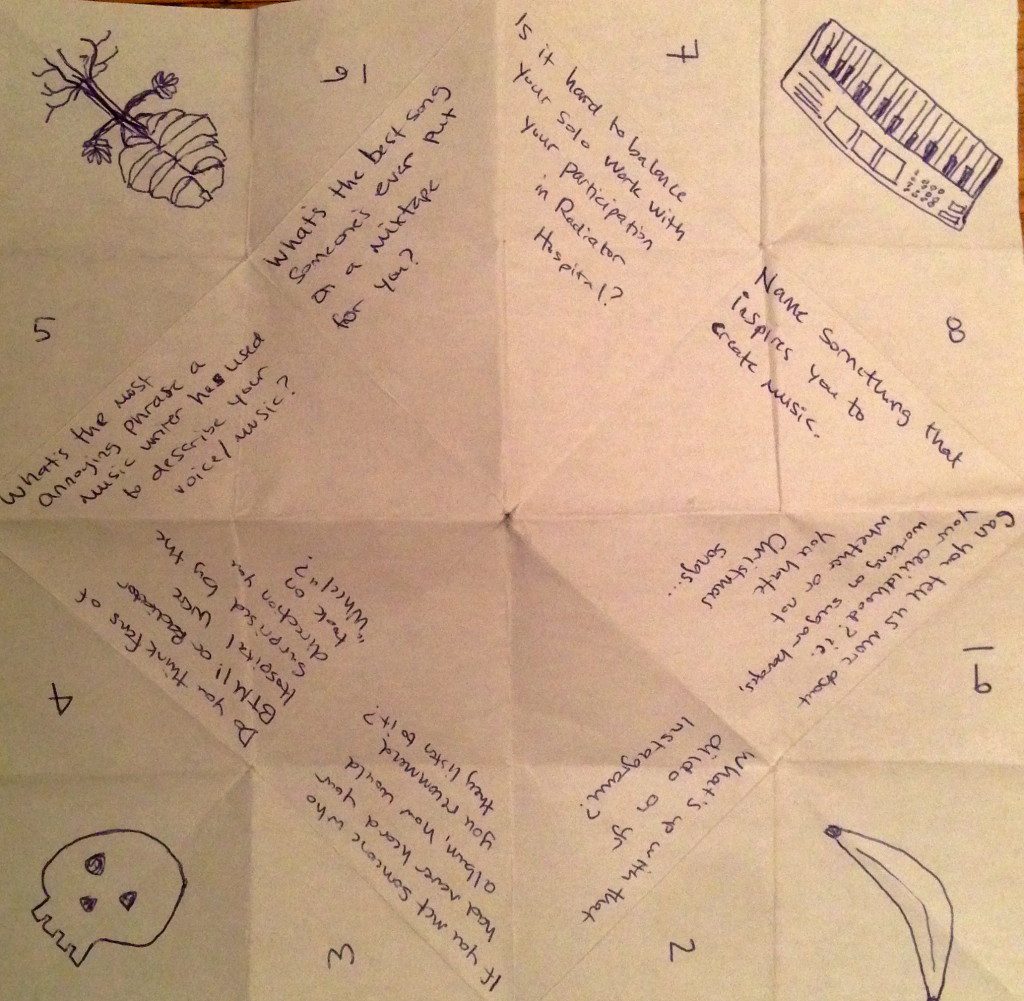 6
What's the best song
someone's ever put
on a mixtape
for you?
7
Is it hard to balance
your solo work with
your participation
in Radiator
Hospital?
8
Name something that
inspires you to
create music.
9
Can you tell us more about
your childhood? i.e.
working on sugar barges,
whether or not
you hate
Christmas
songs...
2
What's up with that
dildo on yr
Instagram?
3
If you met someone who
had never heard your
album, how would
you recommend
they listen to it?
4
Do you think fans of
BTM!! or Radiator
Hospital were
surprised by the
direction you
took on
"Wheel"?
5
What's the most
annoying phrase a
music writer has used
to describe your
voice/music?